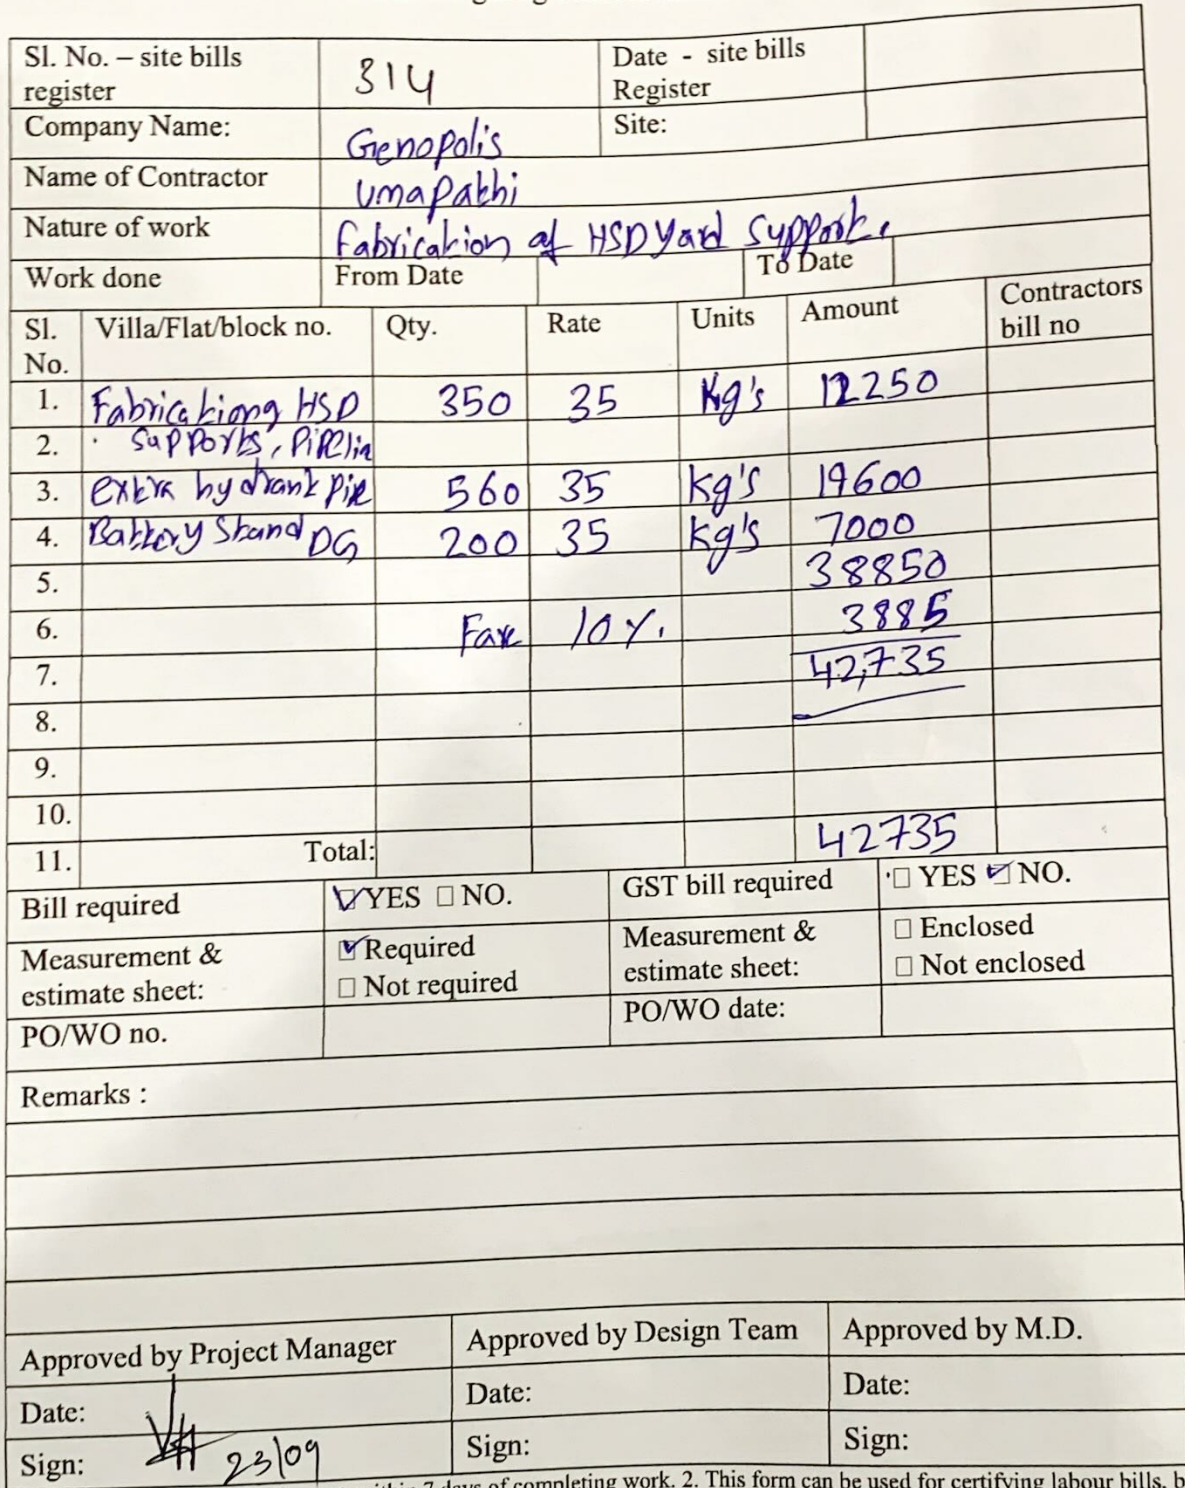 Sl. No. – site bills register 314 Date - site bills Register
Company Name: Genopolis Site:
Name of Contractor Umapathi
Nature of work Fabrication of HSD Yard Support.
Work done From Date To Date
Sl. No. Villa/Flat/block no. Qty. Rate Units Amount Contractors bill no
1. Fabrication HSD 350 35 Kg's 12250
2. Supports, Pipelin
3. extra hydrant Pipe 560 35 Kg's 19600
4. Battery Stand DG 200 35 Kg's 7000
5. 38850
6. 10%. 3885
7. 42,735
8.
9.
10.
11. Total: 42735
Bill required YES NO. GST bill required YES NO.
Measurement & estimate sheet: Required Not required Measurement & estimate sheet: Enclosed Not enclosed
PO/WO no. PO/WO date:
Remarks :
Approved by Project Manager Approved by Design Team Approved by M.D.
Date: Date: Date:
Sign: 23/09 Sign: Sign:
7 days of completing work. 2. This form can be used for certifying labour bills, b